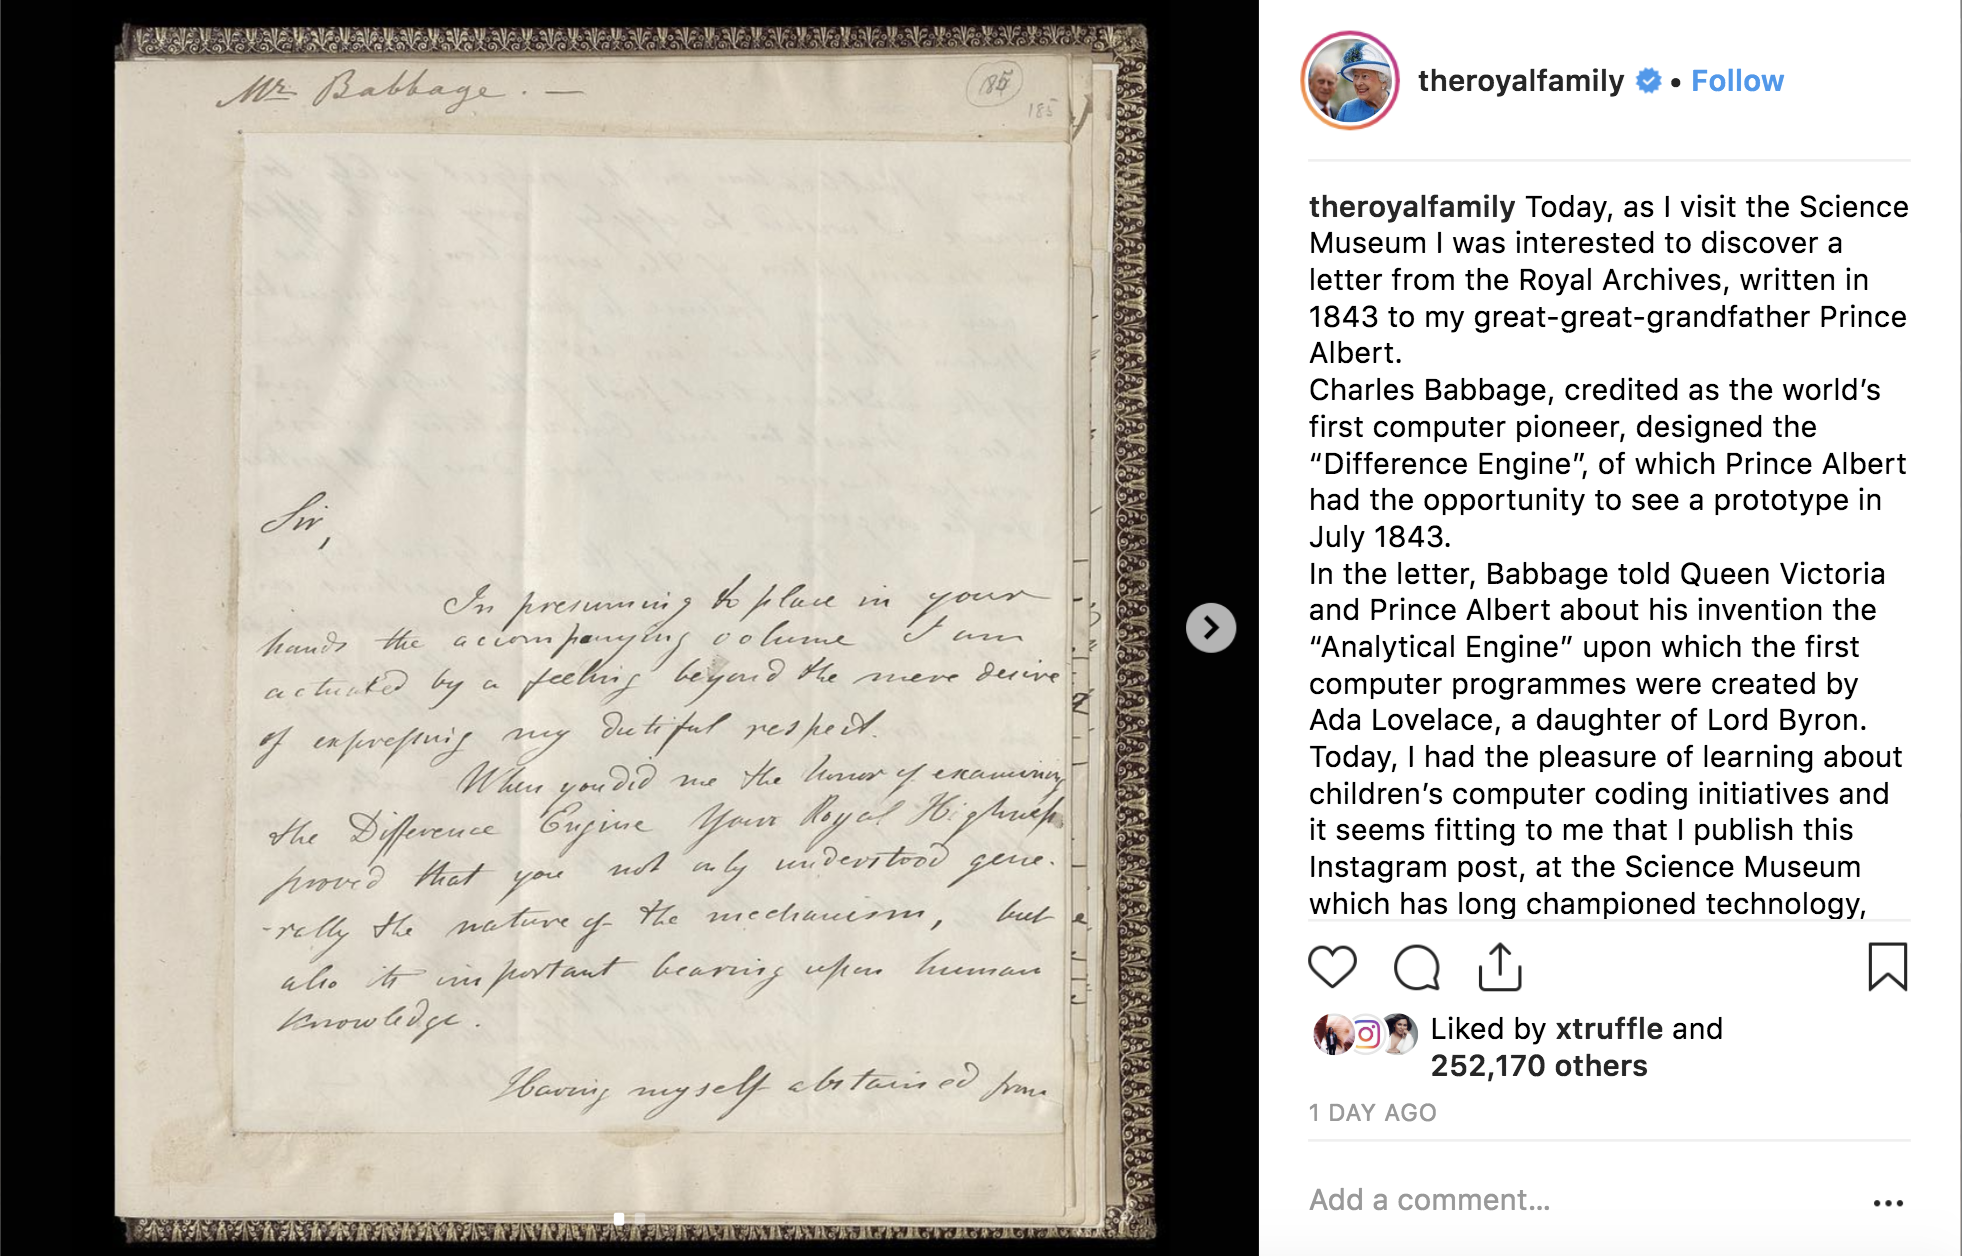 Mr Babbage. —
185
Sir,
In presuming to place in your
hands the accompanying volume I am
actuated by a feeling beyond the mere desire
of expressing my dutiful respect.
When you did me the honor of examining
the Difference Engine Your Royal Highness
proved that you not only understood gene-
-rally the nature of the mechanism, but
also its important bearing upon human
knowledge.
Having myself abstained from
theroyalfamily • Follow
theroyalfamily Today, as I visit the Science
Museum I was interested to discover a
letter from the Royal Archives, written in
1843 to my great-great-grandfather Prince
Albert.
Charles Babbage, credited as the world’s
first computer pioneer, designed the
“Difference Engine”, of which Prince Albert
had the opportunity to see a prototype in
July 1843.
In the letter, Babbage told Queen Victoria
and Prince Albert about his invention the
“Analytical Engine” upon which the first
computer programmes were created by
Ada Lovelace, a daughter of Lord Byron.
Today, I had the pleasure of learning about
children’s computer coding initiatives and
it seems fitting to me that I publish this
Instagram post, at the Science Museum
which has long championed technology,
Liked by xtruffle and
252,170 others
1 DAY AGO
Add a comment...